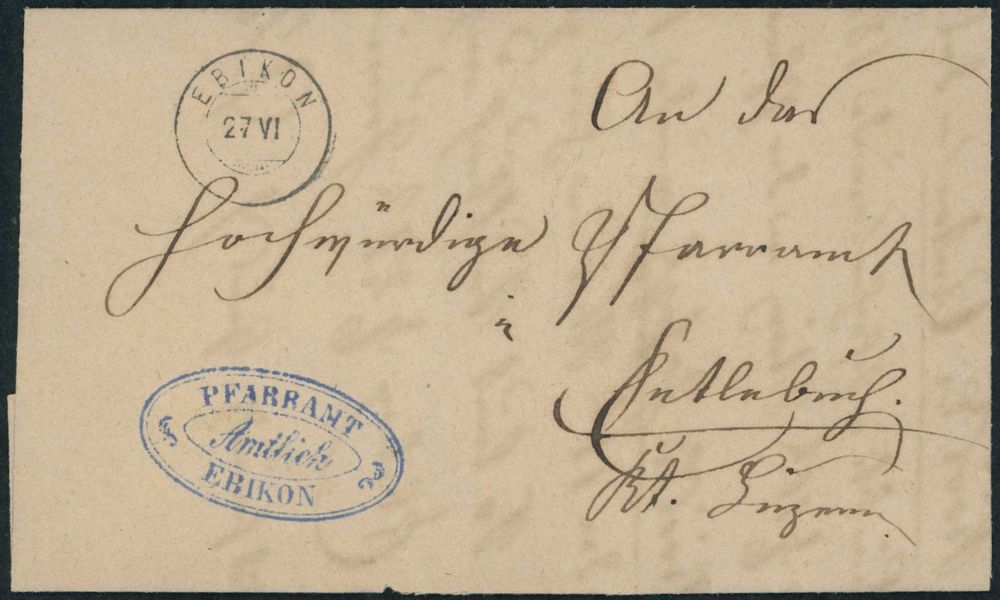 EBIKON
27 VI
An das
Hochwürdige Pfarramt
in
Entlebuch.
Kt. Luzern
PFARRAMT
Amtlich
EBIKON